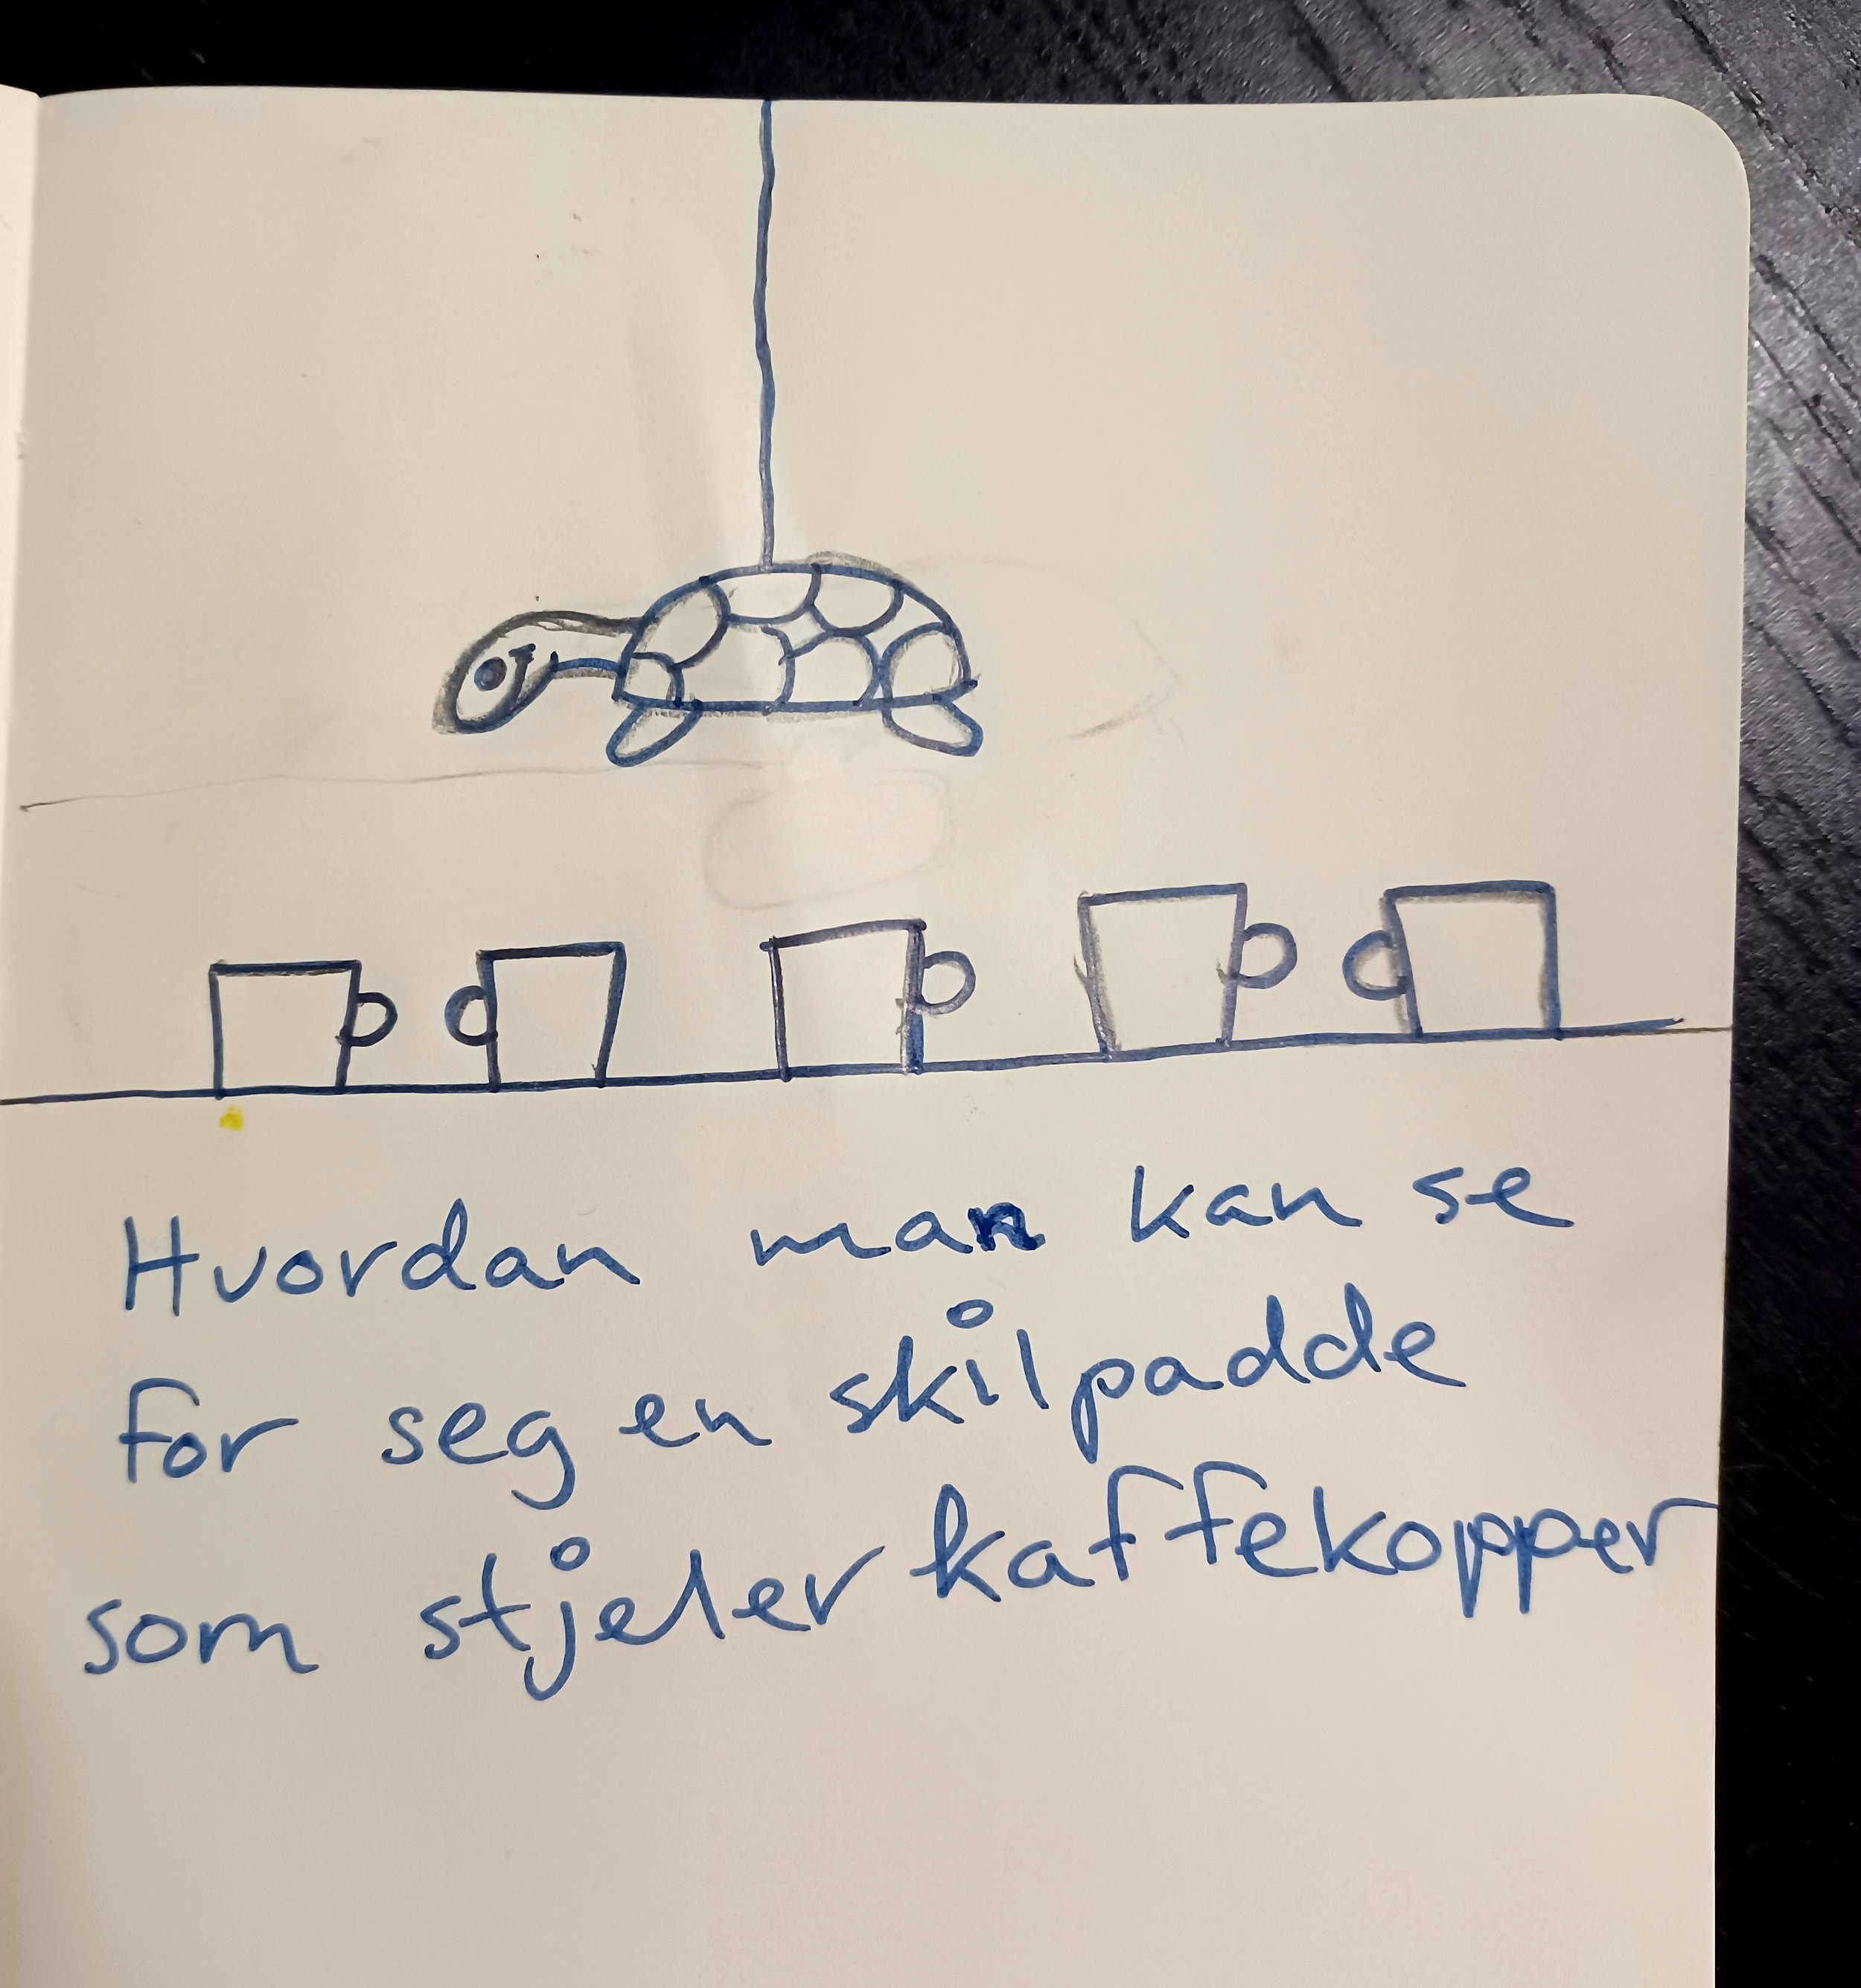 Hvordan man kan se
for seg en skilpadde
som stjeler kaffekopper